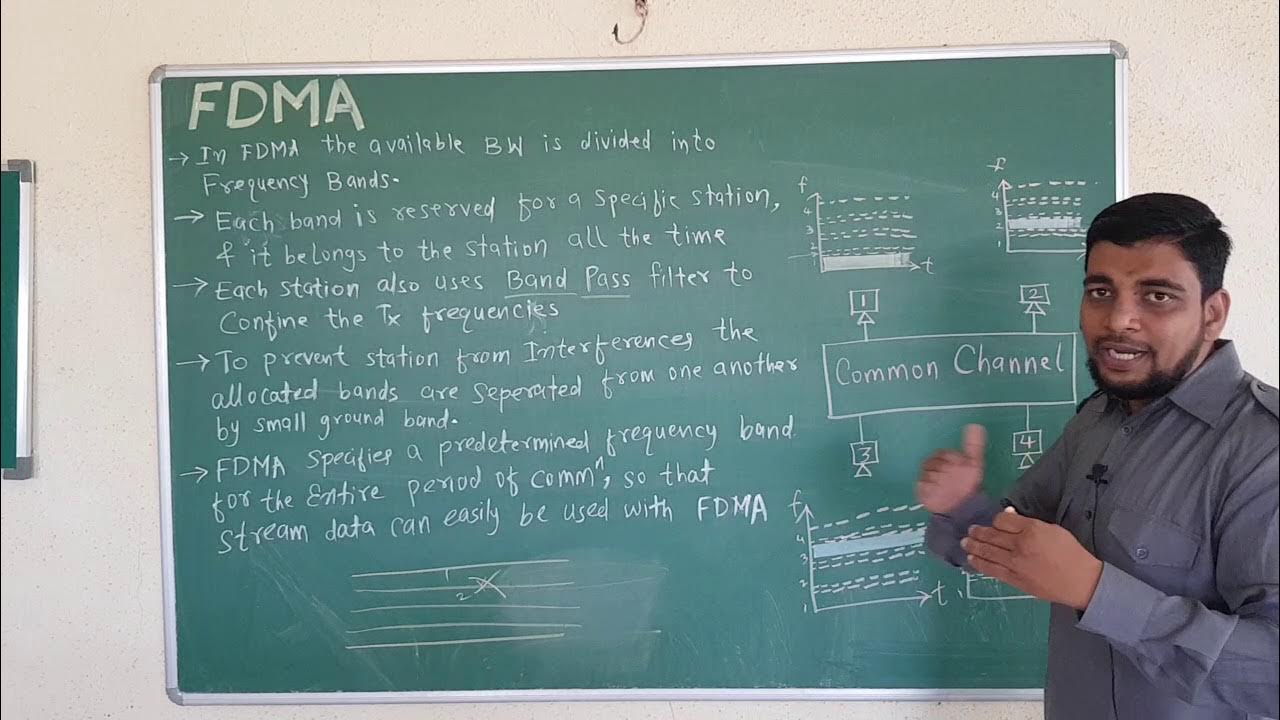 FDMA
→ In FDMA the available BW is divided into
Frequency Bands.
→ Each band is reserved for a specific station,
& it belongs to the station all the time
→ Each station also uses Band Pass filter to
Confine the Tx frequencies
→ To prevent station from Interferences the
allocated bands are seperated from one another
by small ground band.
→ FDMA specifies a predetermined frequency band
for the Entire period of commⁿ, so that
stream data can easily be used with FDMA
1
2
f
4
3
2
1
t
f
4
3
2
1
1
2
Common Channel
3
4
f
4
3
2
1
t
1